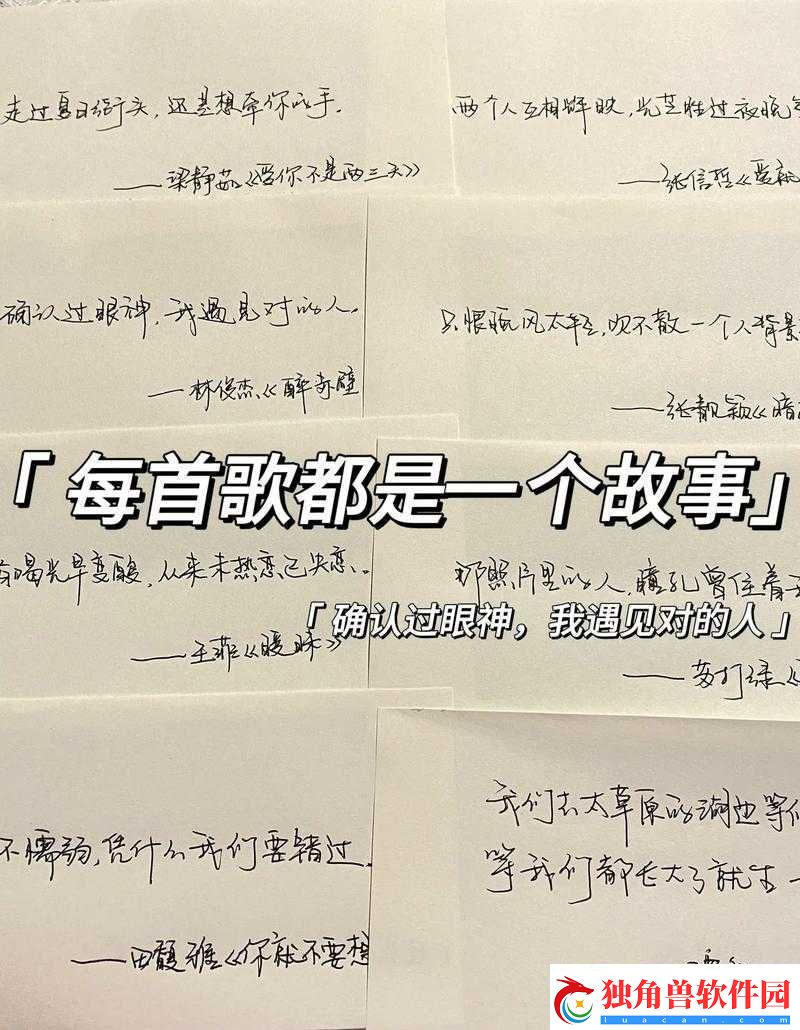 走过夏日街头,还是想牵你的手.
——梁静茹《爱你不是两三天》
两个人互相辉映,光芒胜过夜晚
——张信哲《爱就
确认过眼神,我遇见对的人.
——林俊杰《醉赤壁
只恨晚风太轻,吹不散一个人背景
——张靓颖《暗
「每首歌都是一个故事」
喝光早变酸,从来未热恋已失恋.
——王菲《暧昧》
那照片里的人,瞳孔曾住着
「确认过眼神,我遇见对的人」
——苏打绿《
不懦弱,凭什么我们要错过.
——田馥甄《你就不要想
我们去大草原的湖边等
等我们都长大了就生一
独角兽软件园
luacan.com